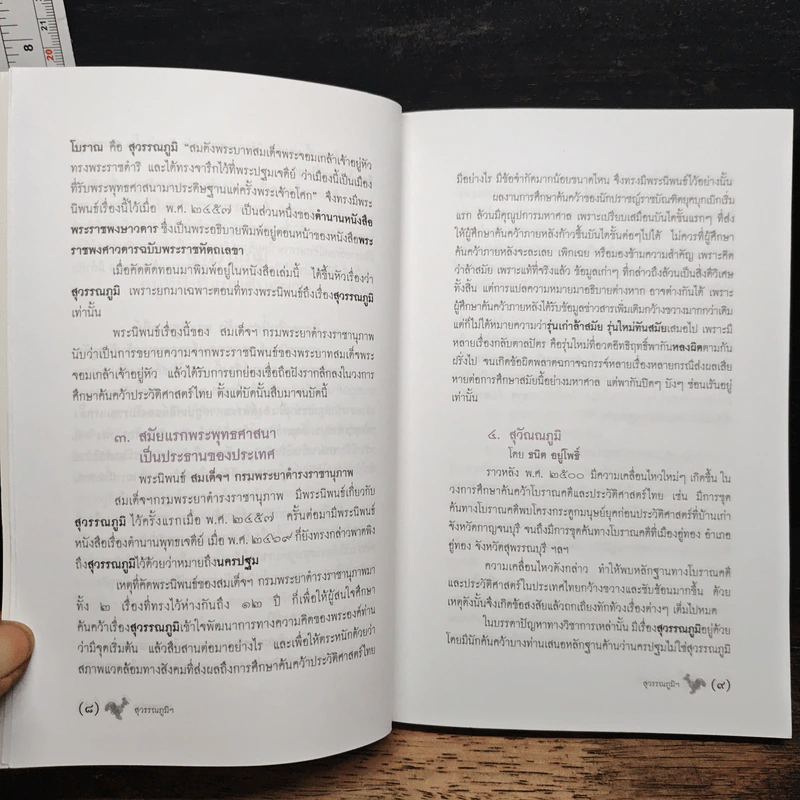 8
20
21
โบราณ คือ สุวรรณภูมิ "สมดังพระบาทสมเด็จพระจอมเกล้าเจ้าอยู่หัว
ทรงพระราชดำริ และได้ทรงจารึกไว้ที่พระปฐมเจดีย์ ว่าเมืองนี้เป็นเมือง
ที่รับพระพุทธศาสนามาประดิษฐานแต่ครั้งพระเจ้าอโศก" จึงทรงมีพระ
นิพนธ์เรื่องนี้ไว้เมื่อ พ.ศ. ๒๔๕๗ เป็นส่วนหนึ่งของตำนานหนังสือ
พระราชพงษาวดาร ซึ่งเป็นพระอธิบายพิมพ์อยู่ตอนหน้าของหนังสือพระ
ราชพงศาวดารฉบับพระราชหัตถเลขา
เมื่อคัดตัดทอนมาพิมพ์อยู่ในหนังสือเล่มนี้ ได้ขึ้นหัวเรื่องว่า
สุวรรณภูมิ เพราะยกมาเฉพาะตอนที่ทรงพระนิพนธ์ถึงเรื่องสุวรรณภูมิ
เท่านั้น
พระนิพนธ์เรื่องนี้ของ สมเด็จฯ กรมพระยาดำรงราชานุภาพ
นับว่าเป็นการขยายความจากพระราชนิพนธ์ของพระบาทสมเด็จพระ
จอมเกล้าเจ้าอยู่หัว แล้วได้รับการยกย่องเชื่อถือฝังรากลึกลงในวงการ
ศึกษาค้นคว้าประวัติศาสตร์ไทย ตั้งแต่บัดนั้นสืบมาจนบัดนี้
๓. สมัยแรกพระพุทธศาสนา
เป็นประธานของประเทศ
พระนิพนธ์ สมเด็จฯ กรมพระยาดำรงราชานุภาพ
สมเด็จฯกรมพระยาดำรงราชานุภาพ มีพระนิพนธ์เกี่ยวกับ
สุวรรณภูมิ ไว้ครั้งแรกเมื่อ พ.ศ. ๒๔๕๗ ครั้นต่อมามีพระนิพนธ์
หนังสือเรื่องตำนานพุทธเจดีย์ เมื่อ พ.ศ. ๒๔๖๙ ก็ยังทรงกล่าวพาดพิง
ถึงสุวรรณภูมิไว้ด้วยว่าหมายถึงนครปฐม
เหตุที่คัดพระนิพนธ์ของสมเด็จฯ กรมพระยาดำรงราชานุภาพมา
ทั้ง ๒ เรื่องที่ทรงไว้ห่างกันถึง ๑๒ ปี ก็เพื่อให้ผู้สนใจศึกษา
ค้นคว้าเรื่องสุวรรณภูมิเข้าใจพัฒนาการทางความคิดของพระองค์ท่าน
ว่ามีจุดเริ่มต้น แล้วสืบสานต่อมาอย่างไร และเพื่อให้ตระหนักด้วยว่า
สภาพแวดล้อมทางสังคมที่ส่งผลถึงการศึกษาค้นคว้าประวัติศาสตร์ไทย
(๘) สุวรรณภูมิฯ
มีอย่างไร มีข้อจำกัดมากน้อยขนาดไหน จึงทรงมีพระนิพนธ์ไว้อย่างนั้น
ผลงานการศึกษาค้นคว้าของนักปราชญ์ราชบัณฑิตยุคบุกเบิกเริ่ม
แรก ล้วนมีคุณูปการมหาศาล เพราะเปรียบเสมือนบันไดขั้นแรกๆ ที่ส่ง
ให้ผู้ศึกษาค้นคว้าภายหลังก้าวขึ้นบันไดขั้นต่อๆไปได้ ไม่ควรที่ผู้ศึกษา
ค้นคว้าภายหลังจะละเลย เพิกเฉย หรือมองข้ามความสำคัญ เพราะคิด
ว่าล้าสมัย เพราะแท้ที่จริงแล้ว ข้อมูลเก่าๆ ที่กล่าวถึงล้วนเป็นสิ่งดีวิเศษ
ทั้งสิ้น แต่การแปลความหมายมาอธิบายต่างหาก อาจต่างกันได้ เพราะ
ผู้ศึกษาค้นคว้าภายหลังได้รับข้อมูลข่าวสารเพิ่มเติมกว้างขวางมากกว่าเดิม
แต่ก็ไม่ได้หมายความว่ารุ่นเก่าล้าสมัย รุ่นใหม่ทันสมัยเสมอไป เพราะมี
หลายเรื่องกลับตาลปัตร คือรุ่นใหม่ที่อวดอิทธิฤทธิ์พากันหลงผิดตามก้น
ฝรั่งไป จนเกิดข้อผิดพลาดฉกาจฉกรรจ์หลายเรื่องหลายกรณีส่งผลเสีย
หายต่อการศึกษาสมัยนี้อย่างมหาศาล แต่พากันปิดๆ บังๆ ซ่อนเร้นกันอยู่
เท่านั้น
๔. สุวัณณภูมิ
โดย ธนิต อยู่โพธิ์
ราวหลัง พ.ศ. ๒๕๐๐ มีความเคลื่อนไหวใหม่ๆ เกิดขึ้น ใน
วงการศึกษาค้นคว้าโบราณคดีและประวัติศาสตร์ไทย เช่น มีการขุด
ค้นทางโบราณคดีพบโครงกระดูกมนุษย์ยุคก่อนประวัติศาสตร์ที่บ้านเก่า
จังหวัดกาญจนบุรี จนถึงมีการขุดค้นทางโบราณคดีที่เมืองอู่ทอง อำเภอ
อู่ทอง จังหวัดสุพรรณบุรี ฯลฯ
ความเคลื่อนไหวดังกล่าว ทำให้พบหลักฐานทางโบราณคดี
และประวัติศาสตร์ในประเทศไทยกว้างขวางและซับซ้อนมากขึ้น ด้วย
เหตุดังนั้นจึงเกิดข้อสงสัยแล้วถกเถียงทักท้วงเรื่องต่างๆ เต็มไปหมด
ในบรรดาปัญหาทางวิชาการเหล่านั้น มีเรื่องสุวรรณภูมิอยู่ด้วย
โดยมีนักค้นคว้าบางท่านเสนอหลักฐานค้านว่านครปฐมไม่ใช่สุวรรณภูมิ
สุวรรณภูมิฯ (๙)